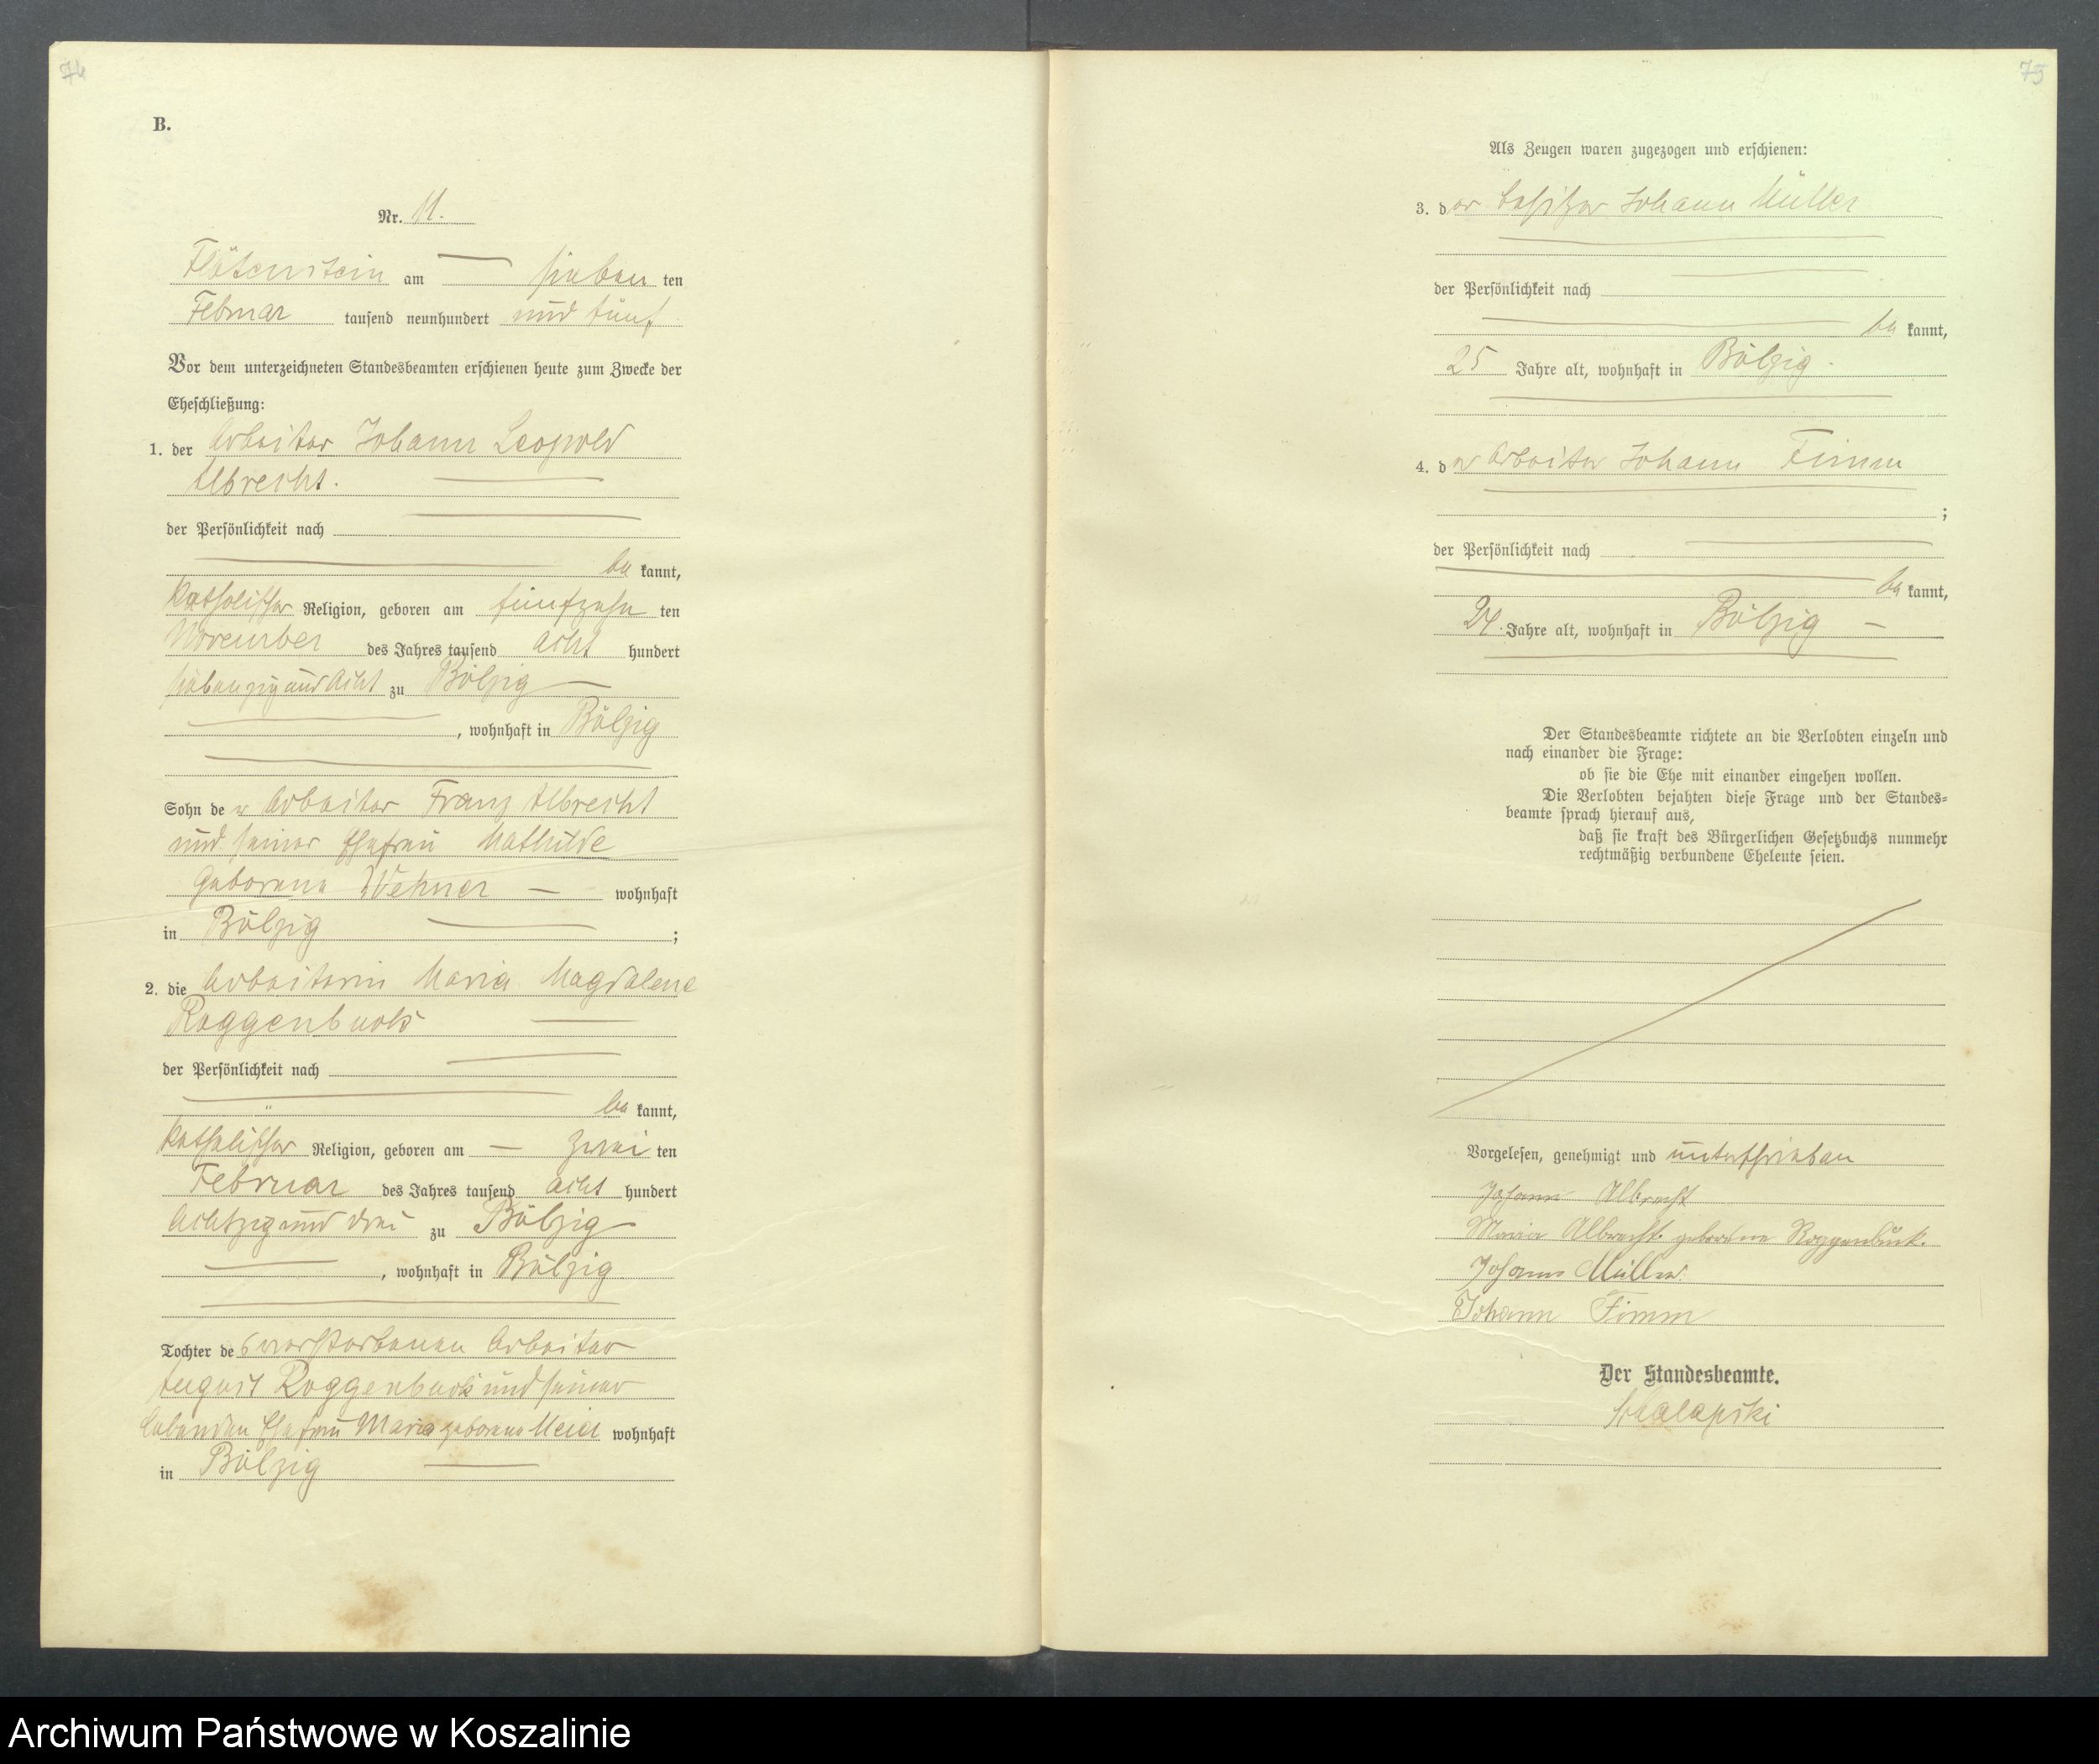 74
B.
Nr. 11.
Flötenstein am sieben ten
Februar tausend neunhundert und fünf
Vor dem unterzeichneten Standesbeamten erschienen heute zum Zwecke der
Eheschließung:
1. der Arbeiter Johann Leopold
Albrecht.
der Persönlichkeit nach
be kannt,
katholischer Religion, geboren am fünfzehn ten
November des Jahres tausend acht hundert
siebenzig und acht zu Bölzig
, wohnhaft in Bölzig
Sohn de r Arbeiter Franz Albrecht
und seiner Ehefrau Mathilde
geborene Wehner wohnhaft
in Bölzig ;
2. die Arbeiterin Maria Magdalene
Roggenbuck
der Persönlichkeit nach
be kannt,
katholischer Religion, geboren am zwei ten
Februar des Jahres tausend acht hundert
achtzig und drei zu Bölzig
, wohnhaft in Bölzig
Tochter de s verstorbenen Arbeiter
August Roggenbuck und seiner
lebenden Ehefrau Maria geborene Meier wohnhaft
in Bölzig
75
Als Zeugen waren zugezogen und erschienen:
3. d er Besitzer Johann Müller
der Persönlichkeit nach
be kannt,
25 Jahre alt, wohnhaft in Bölzig
4. d er Arbeiter Johann Timm
;
der Persönlichkeit nach
be kannt,
24. Jahre alt, wohnhaft in Bölzig
Der Standesbeamte richtete an die Verlobten einzeln und
nach einander die Frage:
ob sie die Ehe mit einander eingehen wollen.
Die Verlobten bejahten diese Frage und der Standes-
beamte sprach hierauf aus,
daß sie kraft des Bürgerlichen Gesetzbuchs nunmehr
rechtmäßig verbundene Eheleute seien.
Vorgelesen, genehmigt und unterschrieben
Johann Albrecht
Maria Albrecht. geborene Roggenbuck.
Johann Müller.
Johann Timm
Der Standesbeamte.
Archiwum Państwowe w Koszalinie